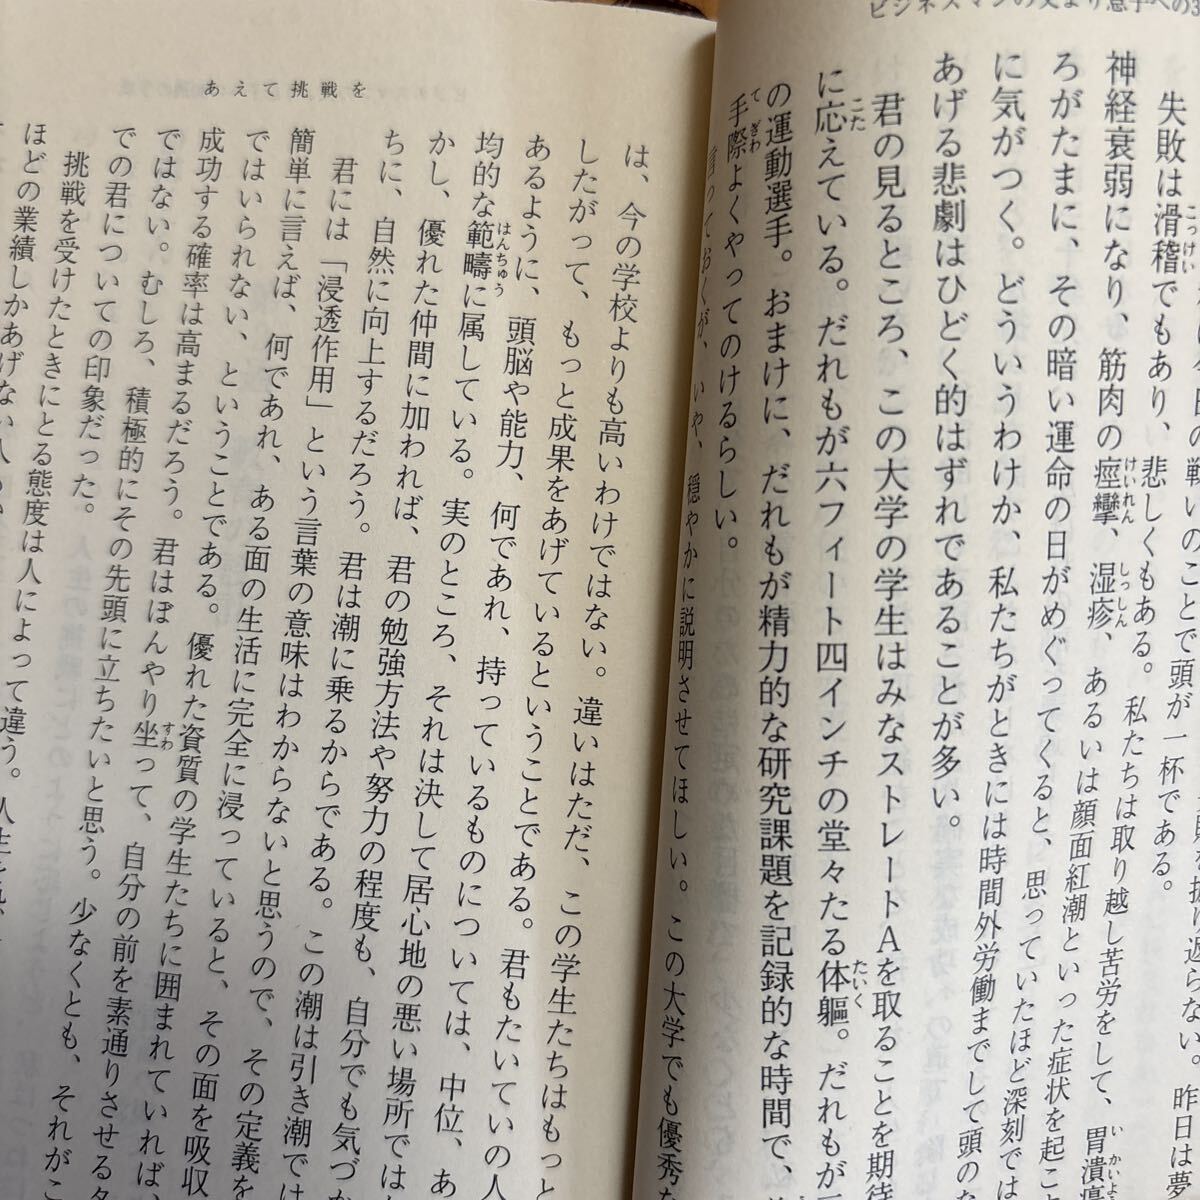 ビジネスマンの父より息子への3
戦いのことで頭が一杯である。
失敗は滑稽でもあり、悲しくもある。私たちは取り越し苦労をして、胃潰瘍
神経衰弱になり、筋肉の痙攣、湿疹、あるいは顔面紅潮といった症状を起こ
ろがたまに、その暗い運命の日がめぐってくると、思っていたほど深刻では
に気がつく。どういうわけか、私たちがときには時間外労働までして頭の
あげる悲劇はひどく的はずれであることが多い。
君の見るところ、この大学の学生はみなストレートAを取ることを期待
に応えている。だれもが六フィート四インチの堂々たる体軀。だれもが
の運動選手。おまけに、だれもが精力的な研究課題を記録的な時間で、
手際よくやってのけるらしい。
言っておくが、いや、穏やかに説明させてほしい。この大学でも優秀な
あえて挑戦を
は、今の学校よりも高いわけではない。違いはただ、この学生たちはもっと
したがって、もっと成果をあげているということである。君もたいていの人
あるように、頭脳や能力、何であれ、持っているものについては、中位、あ
均的な範疇に属している。実のところ、それは決して居心地の悪い場所では
かし、優れた仲間に加われば、君の勉強方法や努力の程度も、自分でも気づか
ちに、自然に向上するだろう。君は潮に乗るからである。この潮は引き潮では
君には「浸透作用」という言葉の意味はわからないと思うので、その定義を
簡単に言えば、何であれ、ある面の生活に完全に浸っていると、その面を吸収
ではいられない、ということである。優れた資質の学生たちに囲まれていれば、
成功する確率は高まるだろう。君はぼんやり坐って、自分の前を素通りさせるタ
ではない。むしろ、積極的にその先頭に立ちたいと思う。少なくとも、それがこ
での君についての印象だった。
挑戦を受けたときにとる態度は人によって違う。人生を
ほどの業績しかあげない人